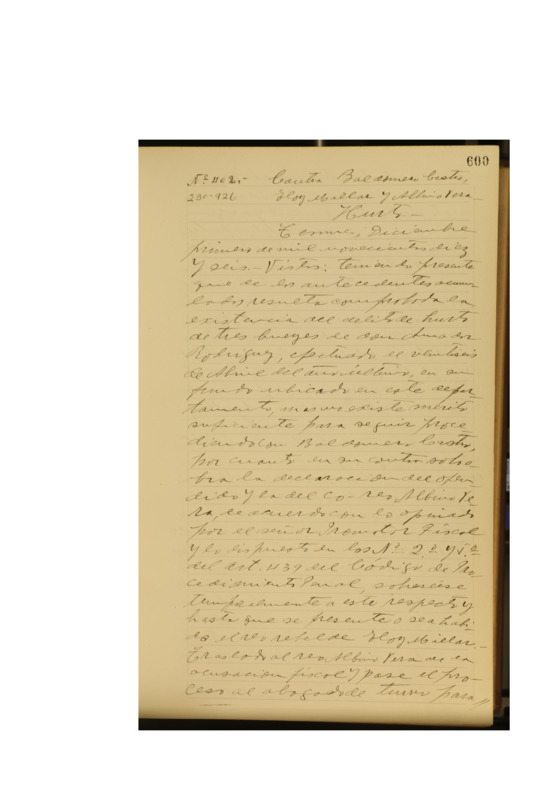 600
Nº 1102.- Contra Baldomero Castro,
230-926 Eloy Millar y Albino Vera
Hurto -
Temuco, Diciembre
primero de mil novecientos diez
y seis.- Vistos: teniendo presente
que de los antecedentes acumu
lados resulta comprobada la
existencia del delito de hurto
de tres bueyes de don Amador
Rodriguez, efectuado el veintiseis
de Abril del año último, en su
fundo ubicado en este depar
tamento, mas no existe mérito
suficiente para seguir proce
diendo con Baldomero Castro,
por cuanto en su contra solo
la declaracion del ofen
dido y la del co-reo Albino Ve
ra, de acuerdo con lo opinado
por el señor Promotor Fiscal
y lo dispuesto en los Nº 2.º y
del art. 439 del Código de Pro
cedimiento Penal, sobresease
temporalmente a este respecto y
hasta que se presente o sea habi
do el reo rebelde Eloy Millar.-
Traslado al reo Albino Vera de la
acusacion fiscal y pase el pro-
ceso al abogado de turno para